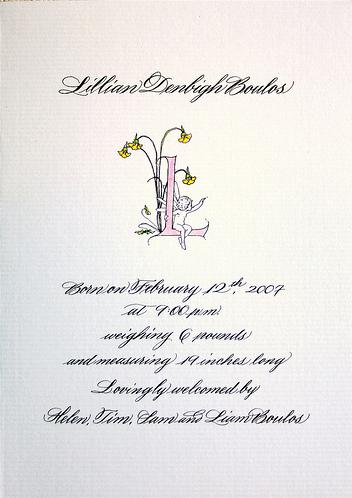 Lillian Denbigh Boulos
L
Born on February 12th, 2007
at 9:00 p.m.
weighing 6 pounds
and measuring 19 inches long
Lovingly welcomed by
Helen, Tim, Sam and Liam Boulos